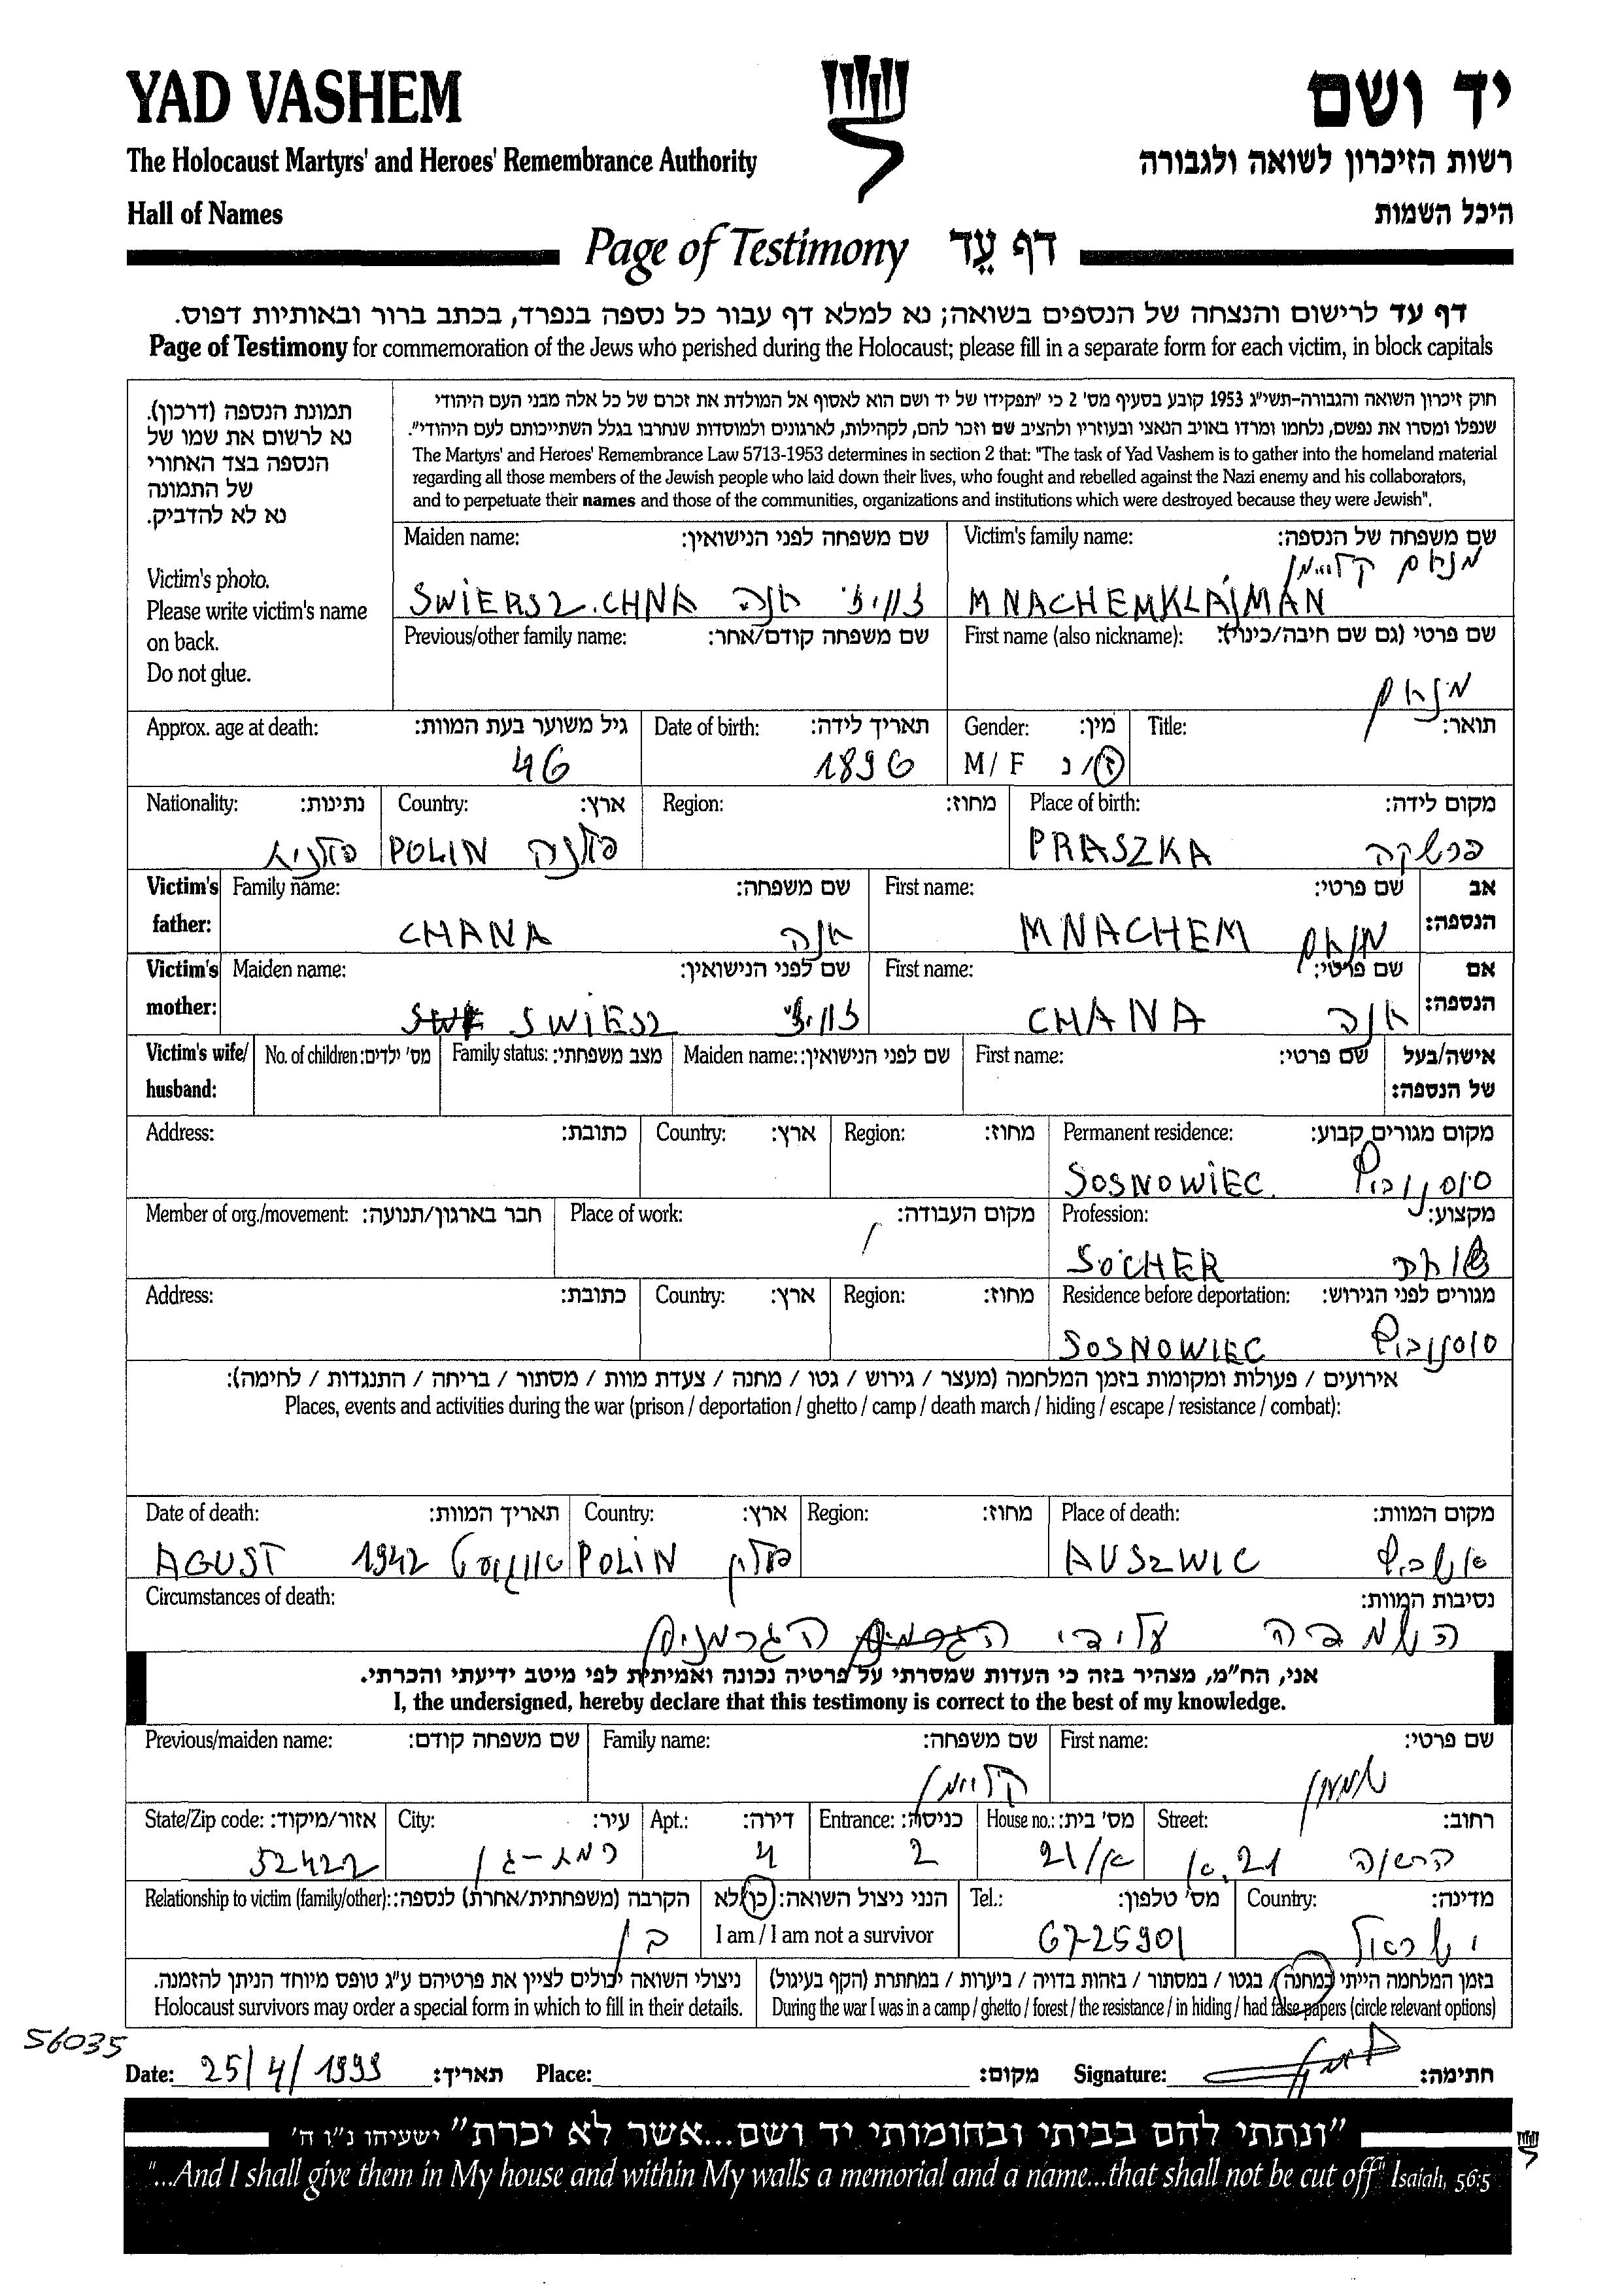 YAD VASHEM
יד ושם
The Holocaust Martyrs' and Heroes' Remembrance Authority
רשות הזיכרון לשואה ולגבורה
Hall of Names
היכל השמות
Page of Testimony דף עֵד
דף עד לרישום והנצחה של הנספים בשואה; נא למלא דף עבור כל נספה בנפרד, בכתב ברור ובאותיות דפוס.
Page of Testimony for commemoration of the Jews who perished during the Holocaust; please fill in a separate form for each victim, in block capitals
תמונת הנספה (דרכון).
נא לרשום את שמו של
הנספה בצד האחורי
של התמונה
נא לא להדביק.
Victim's photo.
Please write victim's name
on back.
Do not glue.
חוק זיכרון השואה והגבורה-תשי"ג 1953 קובע בסעיף מס' 2 כי "תפקידו של יד ושם הוא לאסוף אל המולדת את זכרם של כל אלה מבני העם היהודי
שנפלו ומסרו את נפשם, נלחמו ומרדו באויב הנאצי ובעוזריו ולהציב שם וזכר להם, לקהילות, לארגונים ולמוסדות שנחרבו בגלל השתייכותם לעם היהודי".
The Martyrs' and Heroes' Remembrance Law 5713-1953 determines in section 2 that: "The task of Yad Vashem is to gather into the homeland material
regarding all those members of the Jewish people who laid down their lives, who fought and rebelled against the Nazi enemy and his collaborators,
and to perpetuate their names and those of the communities, organizations and institutions which were destroyed because they were Jewish".
Maiden name: שם משפחה לפני הנישואין:
Victim's family name: שם משפחה של הנספה:
מנחם קליימן
SWIERSZ.CHNA חנה
MNACHEMKLAJMAN
Previous/other family name: שם משפחה קודם/אחר:
First name (also nickname): שם פרטי (גם שם חיבה/כינוי):
מנחם
Approx. age at death: גיל משוער בעת המוות:
Date of birth: תאריך לידה:
Gender: מין:
Title: תואר:
46
1896
M/ F ז/ נ
Nationality: נתינות:
Country: ארץ:
Region: מחוז:
Place of birth: מקום לידה:
פולנית
POLIN פולנה
PRASZKA פרשקה
Victim's father: Family name: שם משפחה: First name: שם פרטי: אב הנספה:
CHANA חנה
MNACHEM מנחם
Victim's mother: Maiden name: שם לפני הנישואין: First name: שם פרטי: אם הנספה:
SWIESZ
CHANA חנה
Victim's wife/ husband: No. of children: מס' ילדים: Family status: מצב משפחתי: Maiden name: שם לפני הנישואין: First name: שם פרטי: אישה/בעל של הנספה:
Address: כתובת: Country: ארץ: Region: מחוז: Permanent residence: מקום מגורים קבוע:
SOSNOWIEC. סוסנוביץ
Member of org./movement: חבר בארגון/תנועה: Place of work: מקום העבודה: Profession: מקצוע:
SOCHER סוחר
Address: כתובת: Country: ארץ: Region: מחוז: Residence before deportation: מגורים לפני הגירוש:
SOSNOWIEC סוסנוביץ
אירועים / פעולות ומקומות בזמן המלחמה (מעצר / גירוש / גטו / מחנה / צעדת מוות / מסתור / בריחה / התנגדות / לחימה):
Places, events and activities during the war (prison / deportation / ghetto / camp / death march / hiding / escape / resistance / combat):
Date of death: תאריך המוות: Country: ארץ: Region: מחוז: Place of death: מקום המוות:
AGUST 1942 אוגוסט
POLIN פולין
AUSZWIC אושביץ
Circumstances of death: נסיבות המוות:
השמדה על ידי הגרמנים
אני, הח"מ, מצהיר בזה כי העדות שמסרתי על פרטיה נכונה ואמיתית לפי מיטב ידיעתי והכרתי.
I, the undersigned, hereby declare that this testimony is correct to the best of my knowledge.
Previous/maiden name: שם משפחה קודם: Family name: שם משפחה: First name: שם פרטי:
קליימן
שמעון
State/Zip code: אזור/מיקוד: City: עיר: Apt.: דירה: Entrance: כניסה: House no.: מס' בית: Street: רחוב:
52422
רמת-גן
4
2
21/א
הרואה 21 א.
Relationship to victim (family/other): הקרבה (משפחתית/אחרת) לנספה: הנני ניצול השואה: כן/לא Tel.: מס' טלפון: Country: מדינה:
בן
I am / I am not a survivor
6725901
ישראל
ניצולי השואה יכולים לציין את פרטיהם ע"ג טופס מיוחד הניתן להזמנה.
Holocaust survivors may order a special form in which to fill in their details.
בזמן המלחמה הייתי במחנה / בגטו / במסתור / בזהות בדויה / ביערות / במחתרת (הקף בעיגול)
During the war I was in a camp / ghetto / forest / the resistance / in hiding / had false papers (circle relevant options)
56035
Date: 25/4/1999 תאריך: Place: מקום: Signature: חתימה:
"ונתתי להם בביתי ובחומותי יד ושם...אשר לא יכרת" ישעיהו נ"ו ה'
"...And I shall give them in My house and within My walls a memorial and a name...that shall not be cut off" Isaiah, 56:5